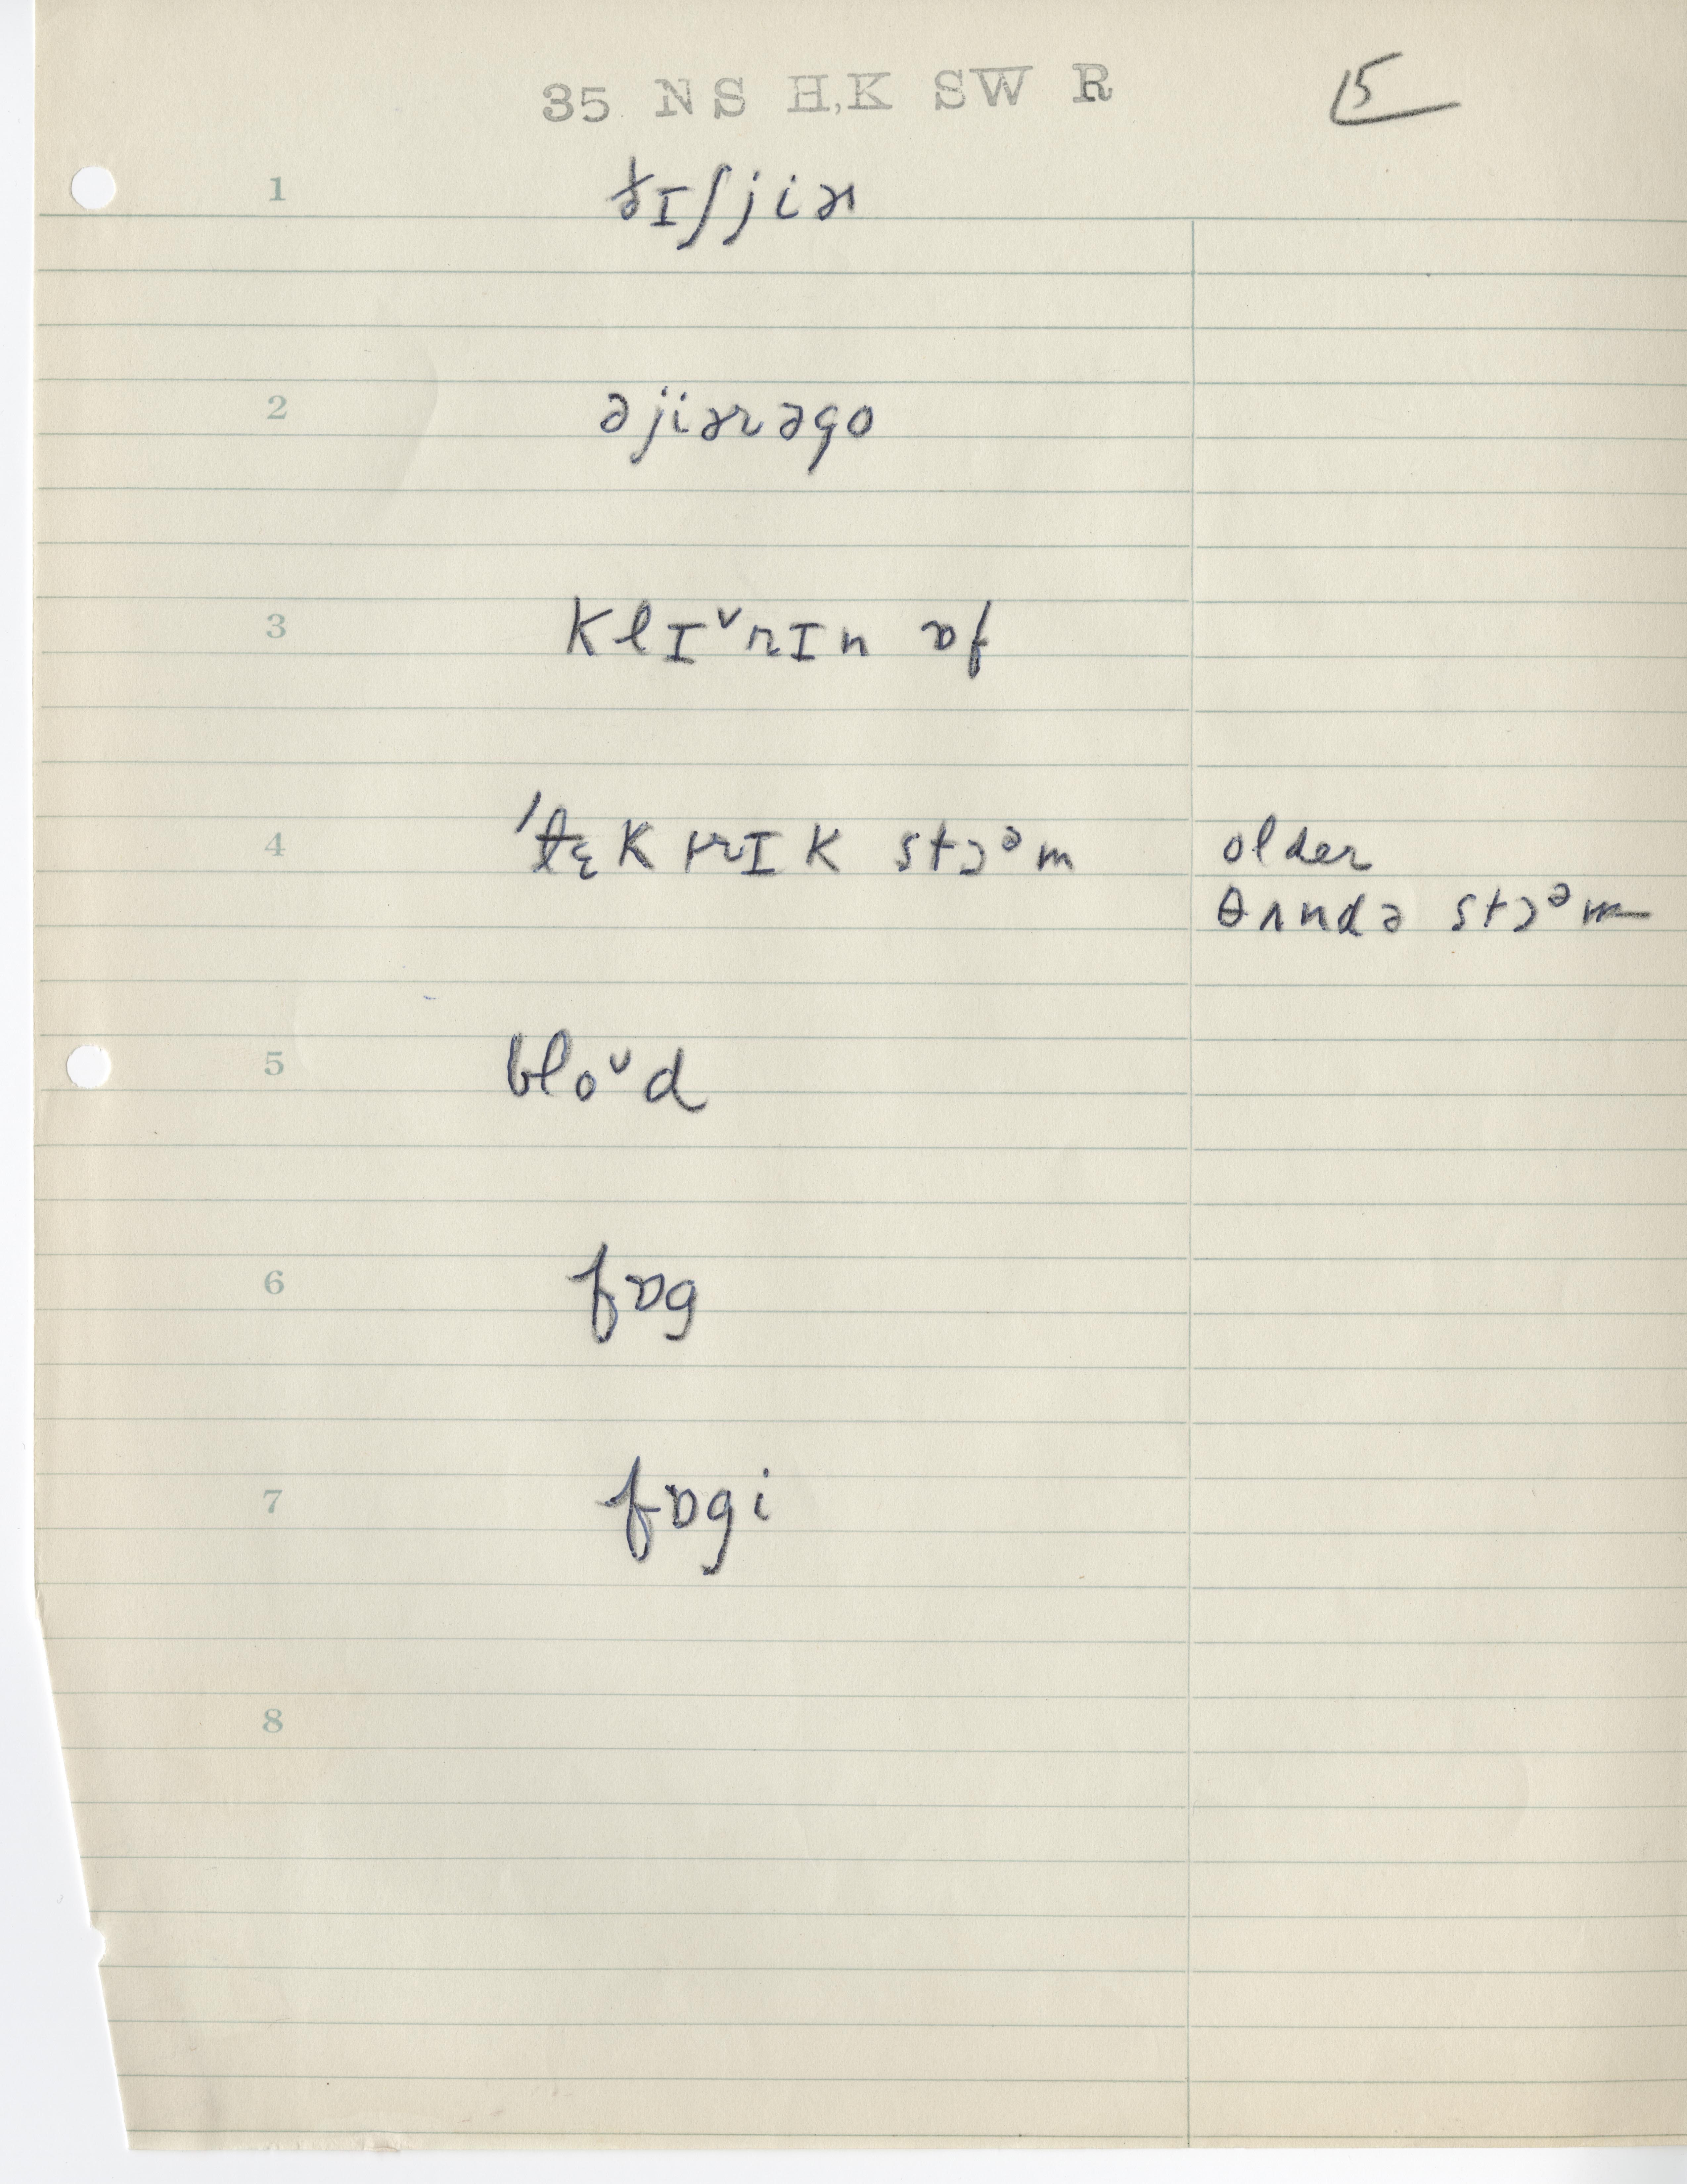 35 NS H,K SW R
15
1 ðɪʃjiɚ
2 əjiɚrəgo
3 klɪᵛrɪn ɒf
4 ˈlɛktrɪk stɔᵊm older
θʌndə stɔᵊm
5 bloᵘd
6 fɒg
7 fɒgi
8